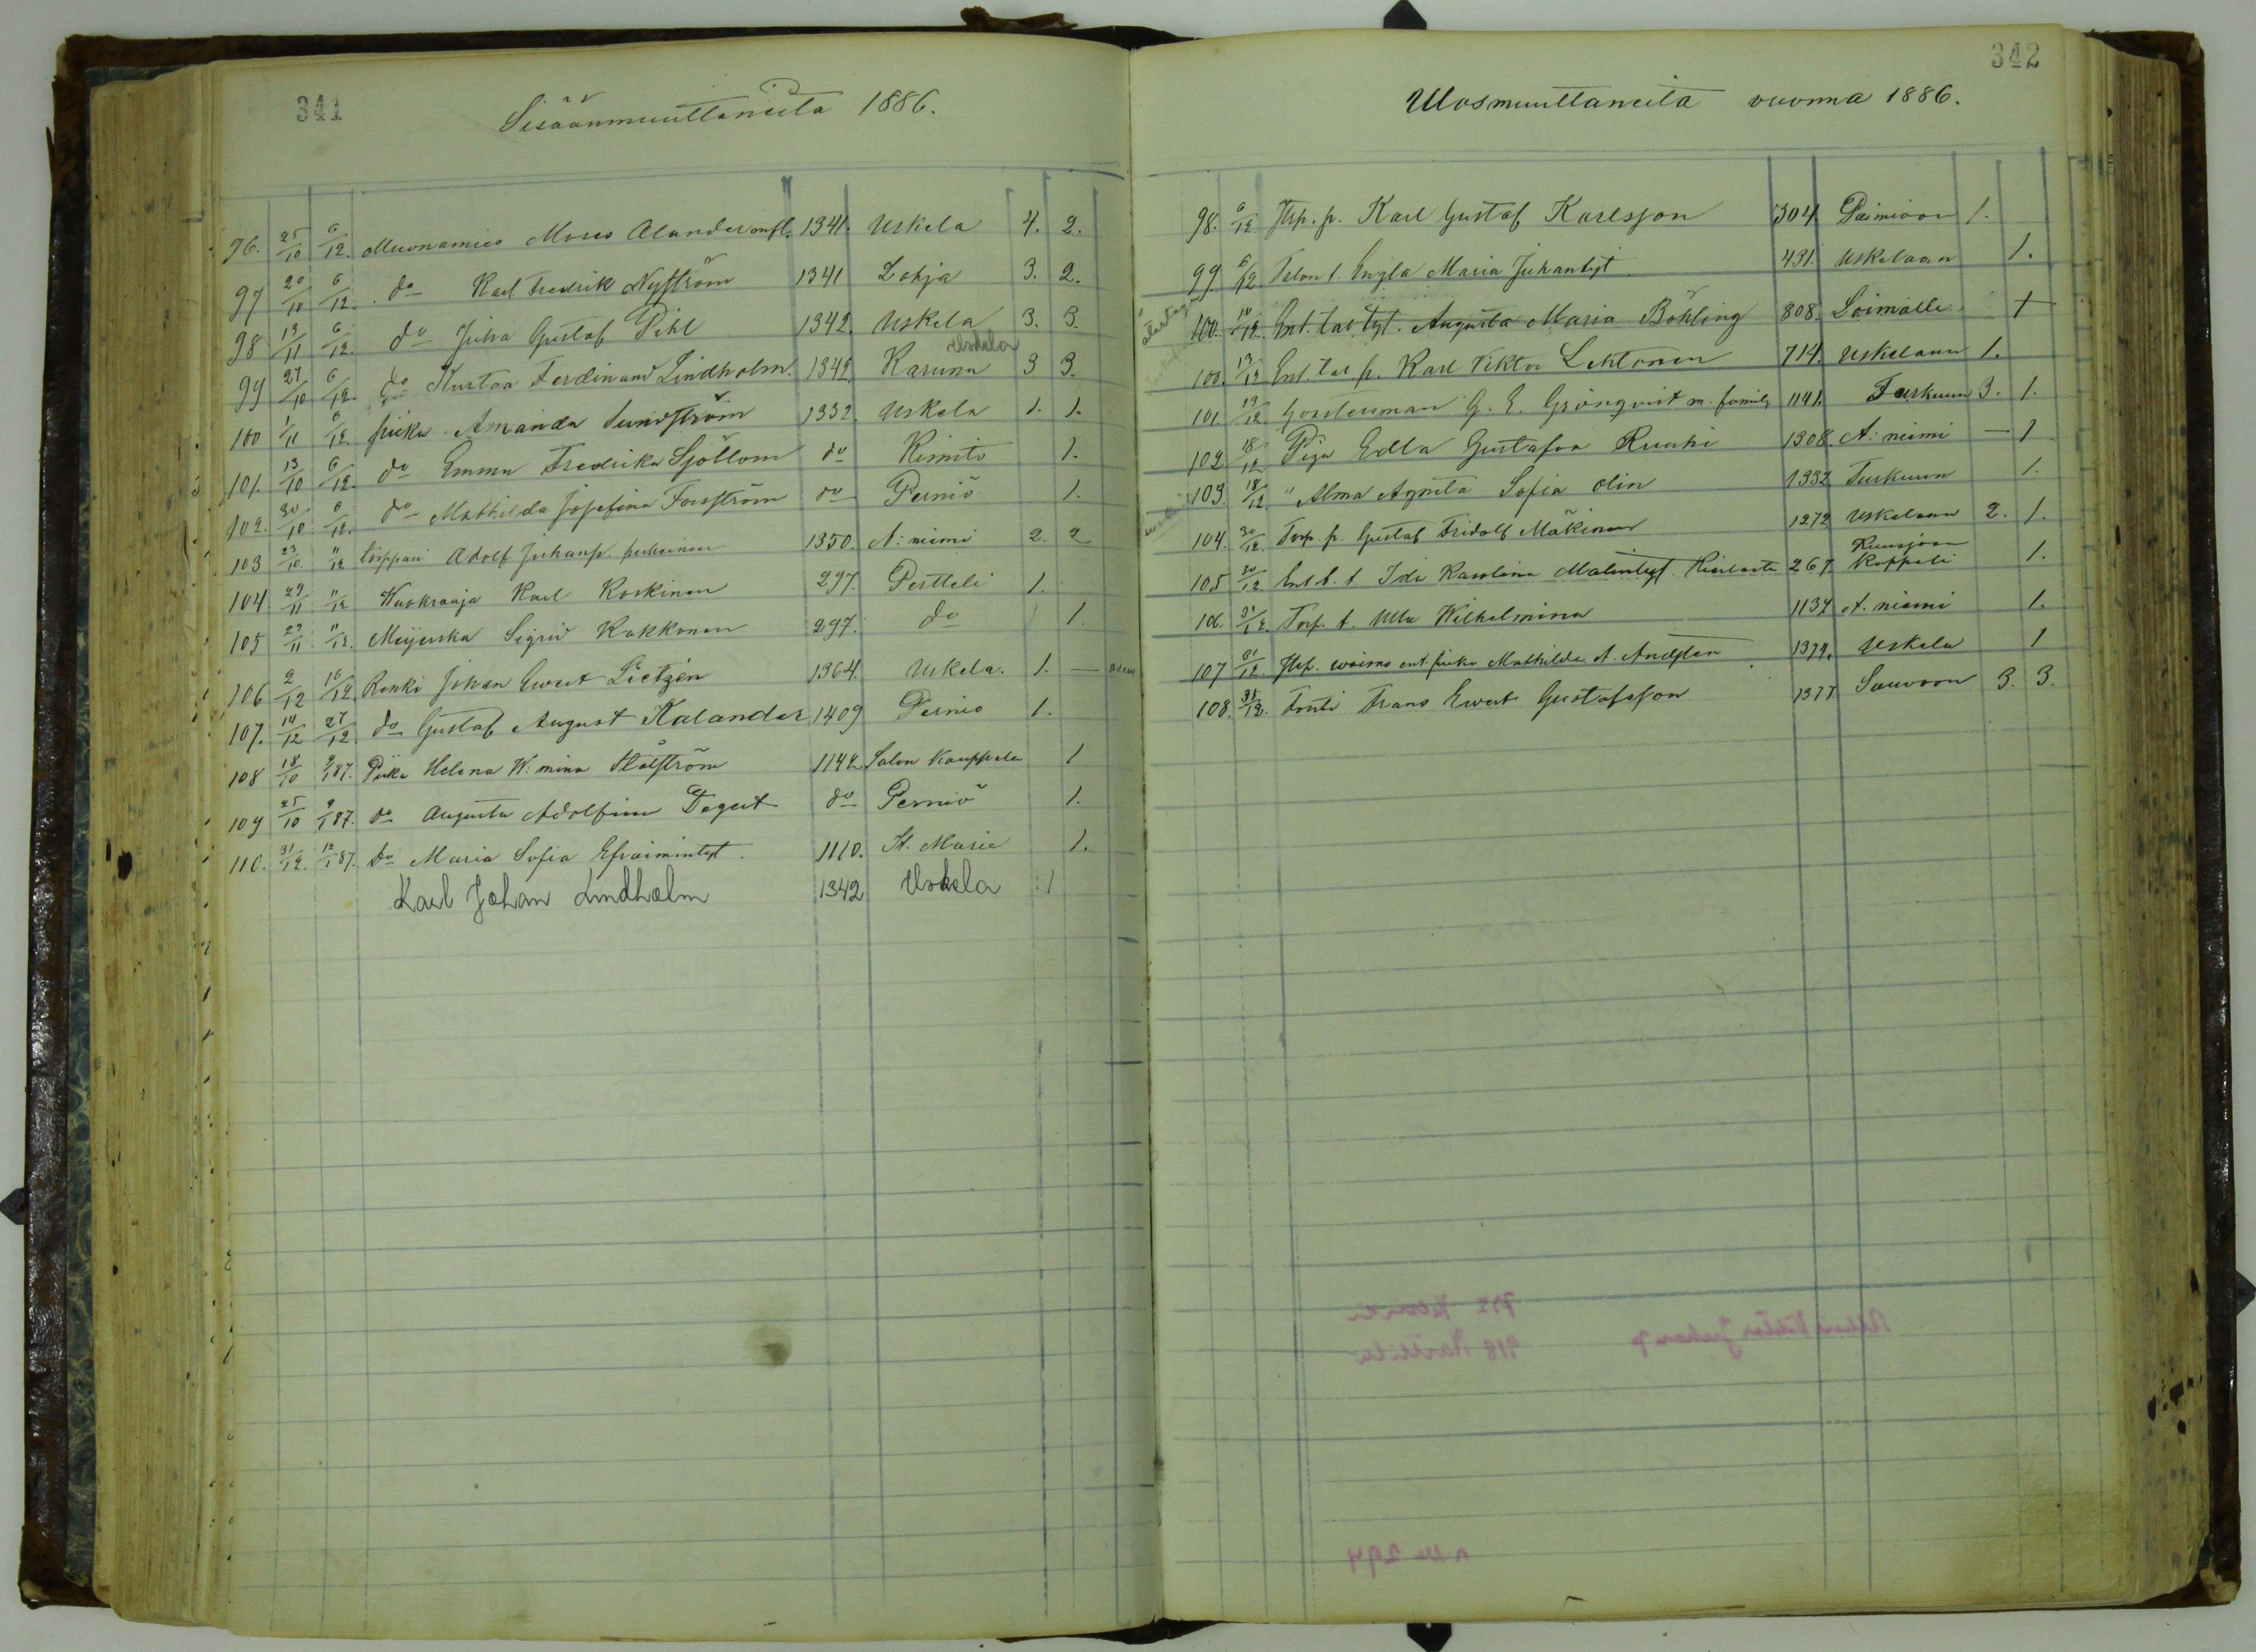 341
Sisäänmuuttaneita 1886.
96. 25/10 6/12. Muonamies Moses Alander 1341. Uskela 4. 2.
97 20/10 6/12. do Karl Fredrik Nyström 1341 Lohja 3. 2.
98 13/11 6/12. do Juha Gustaf Pihl 1342. Uskela 3. 3.
Uskela
99 27/10 6/12. do Kustaa Ferdinand Lindholm. 1342. Karuna 3 3.
100 1/11 6/12 piika Amanda Sundström 1332. Uskela 1. 1.
101. 13/10 6/12. do Emma Fredrika Sjöblom do Kimito 1.
102. 30/10 6/12. do Mathilda Josefina Forsström do Perniö 1.
103 23/10 11/12 torppari Adolf Juhanp. 1350. A:niemi 2. 2
104. 29/11 11/12 Wuokraaja Karl Koskinen 297. Pertteli 1.
105 29/11 11/12. Meijerska Sigrid Kakkonen 297. do 1.
106 2/12 16/12. Renki Johan Evert Lietzén 1364. Uskela. 1. —
107. 14/12 27/12. do Gustaf August Kalander 1409 Pernio 1.
108 18/10 9/1 87. Piika Helena W:mina Stålström 1142 Salon Kauppala 1
109 25/10 9/1 87. do Augusta Adolfina Degert do Perniö 1.
110. 31/12. 12/1 87. do Maria Sofia Efraimintyt. 1110. St. Marie 1.
Karl Johan Lindholm 1342 Uskela 1
342
Ulosmuuttaneita vuonna 1886.
98. 6/12 Itsp. p. Karl Gustaf Karlsson 304 Paimioon 1.
99 6/12. Talon t. Engla Maria Juhantyt 431. Uskelaan 1.
100. 10/12. Ent. tal. tyt. Augusta Maria Böhling 808. Loimalle 1
100. 13/12 Ent. tal p. Karl Viktor Lehtonen 714. Uskelaan 1.
101. 13/12. Gördesman G. E. Grönqvist m. familj 1141. Turkuun 3. 1.
102 18/12 Piga Edla Gustafva Ruuhi 1308. A:niemi — 1
103. 18/12. " Alma Agneta Sofia Olin 1332 Turkuun 1.
104. 30/12. Torp. p. Gustaf Fridolf Mäkinen 1272 Uskelaan 2. 1.
Kuusjoen
105 30/12. Ent. t. t. Ida Karolina Matintyt. 267. Kappeli 1.
106. 31/12. Torp. t. Ulla Wilhelmina 1134 A. niemi 1.
107 31/12. Itsp. vaimo ent. piika Mathilda A. Andsten 1379. Uskela 1
108. 31/12. Torti Frans Evert Gustafsson 1377 Sauvoon 3. 3.